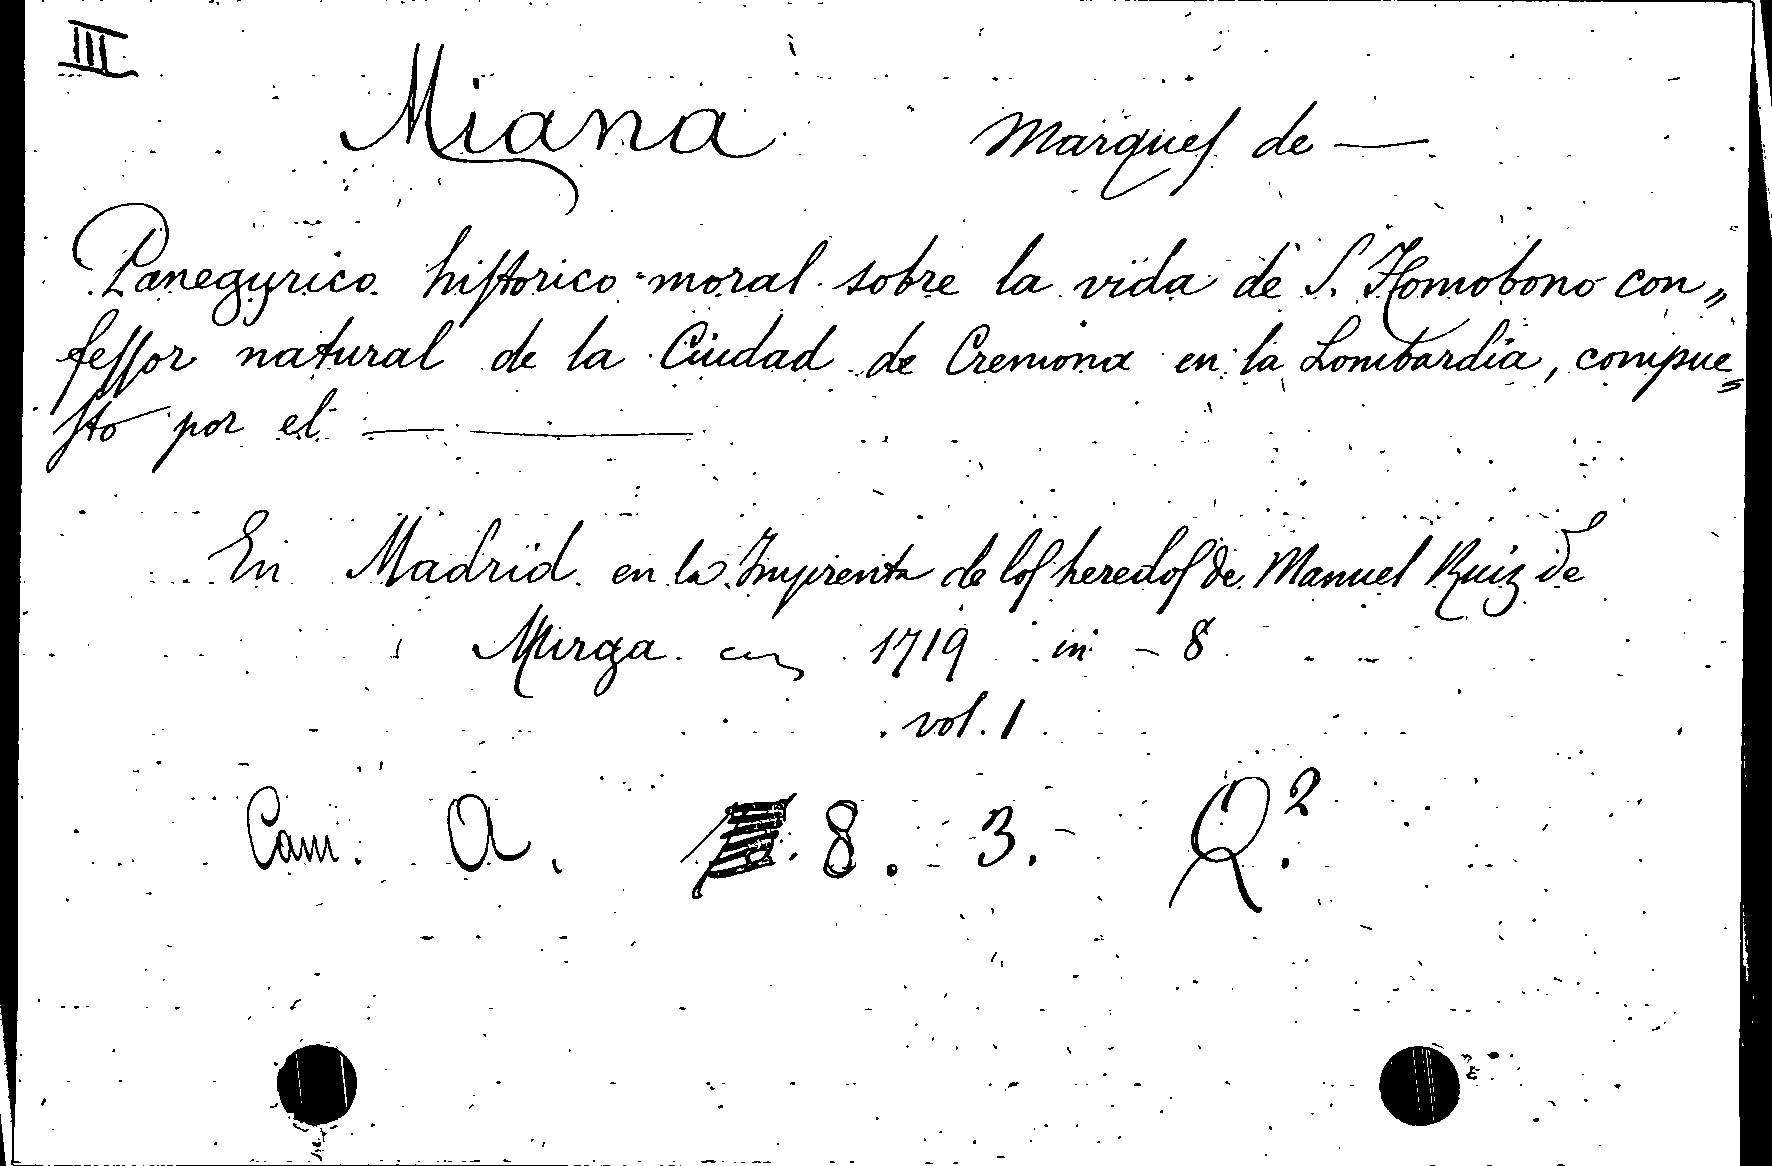 III
Miana Marques de —
Panegyrico historico-moral sobre la vida de S. Homobono con„
fessor natural de la Ciudad de Cremona en la Lombardia, compue„
sto por el — ———
En Madrid en la Imprenta de los heredos de Manuel Ruiz de
Murga 1719 in - 8
vol. 1
Cam. A. 8. 3. Q.²